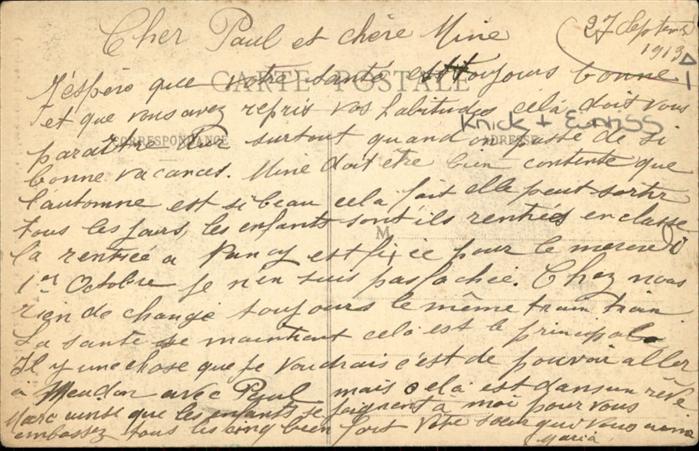 Cher Paul et chère Mine
27 Septembre
1913
CARTE POSTALE
J'espère que votre santé est toujours bonne
et que vous avez repris vos habitudes cela doit vous
Knick + Eunss
CORRESPONDANCE
ADRESSE
paraître dur surtout quand on passe de si
bonne vacances. Mine doit être bien contente que
l'automne est si beau cela fait elle peut sortir
tous les jours, les enfants sont ils rentrés en classe
M
la rentrée à Nancy est fixée pour le mercredi
1er Octobre je n'en suis pas fachée. Chez nous
rien de changé toujours le même train train
La santé se maintient cela est le principal
Il y une chose que je voudrais c'est de pouvoir aller
à Meudon avec Paul mais cela est dans un rêve
Marc ainsi que les enfants se joignent à moi pour vous
embassez tous les cinq bien fort Votre soeur qui vous aime
Maria